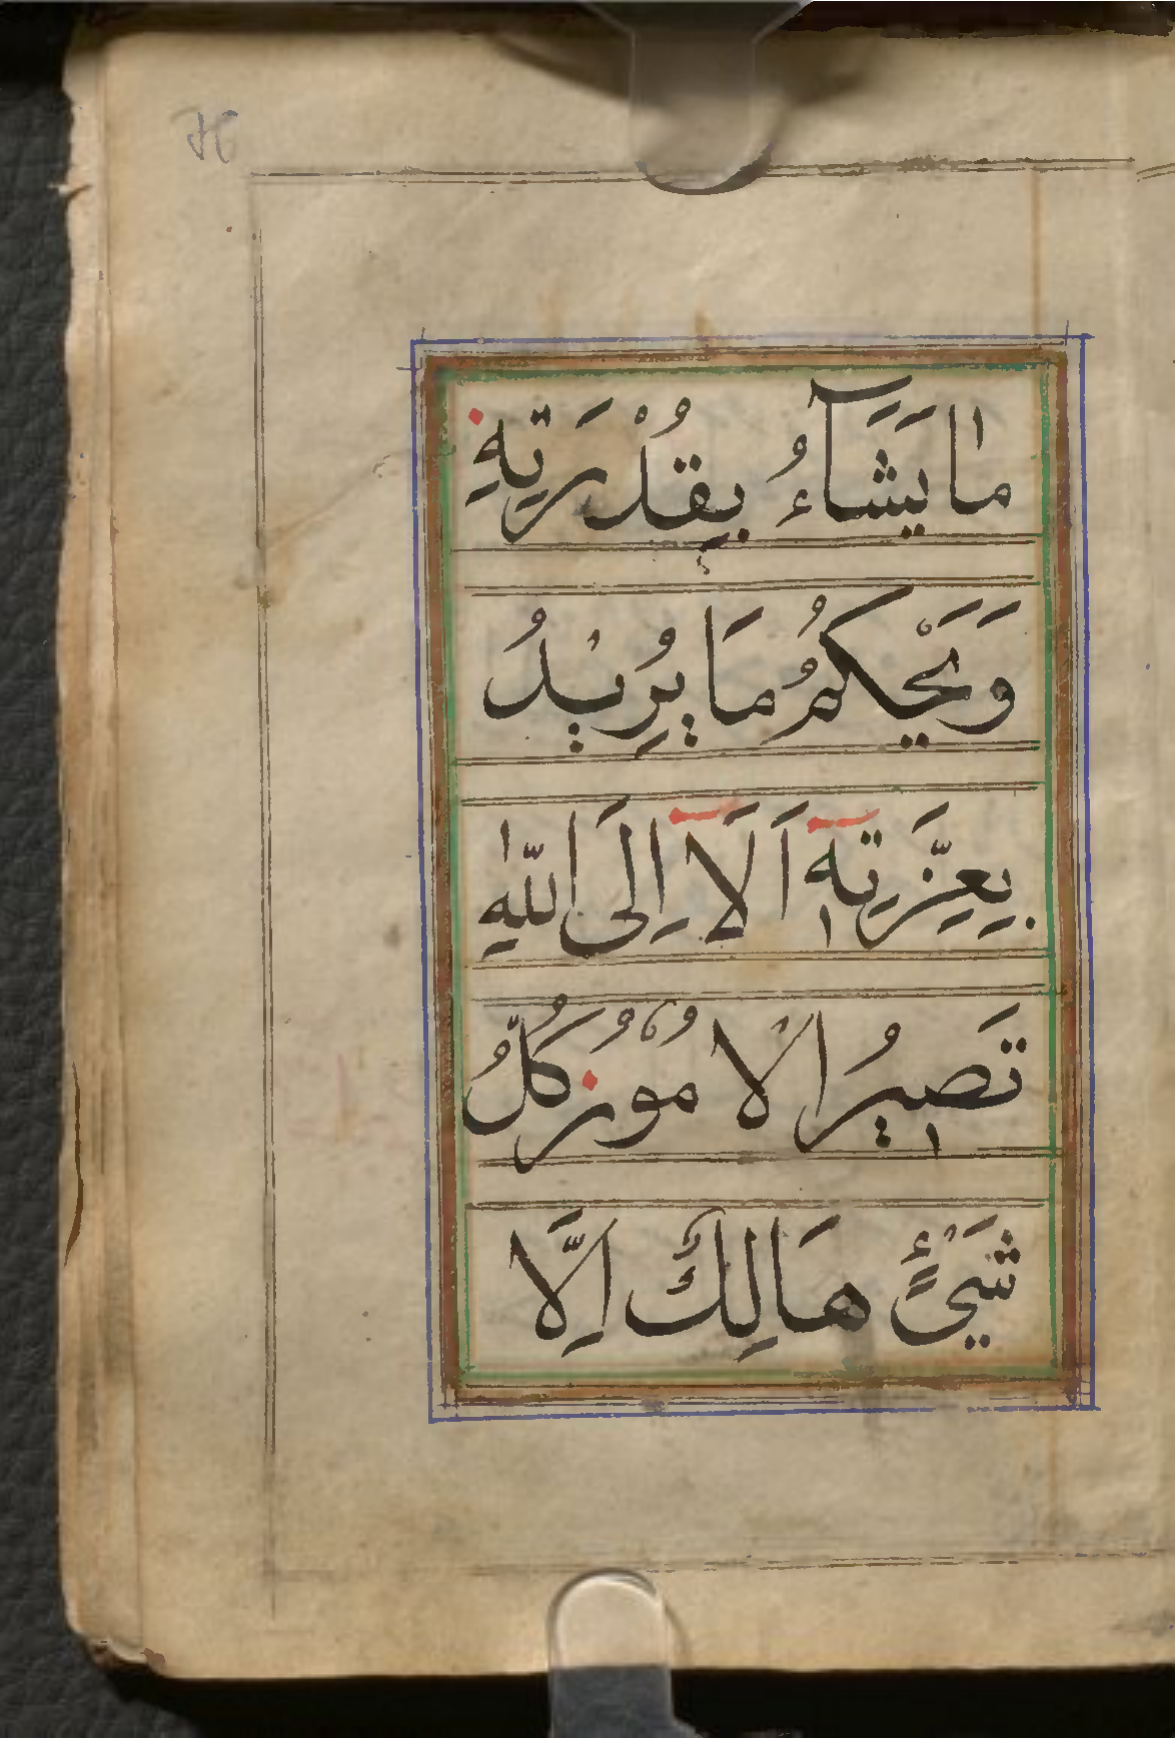 مَا يَشَآءُ بِقُدْرَتِهِ
وَيَحْكُمُ مَا يُرِيْدُ
بِعِزَّتِهٖ اَلَا اِلَى اللّٰهِ
تَصِيْرُ الْاُمُوْرُ كُلُّ
شَيْئٍ هَالِكٌ اِلَّا